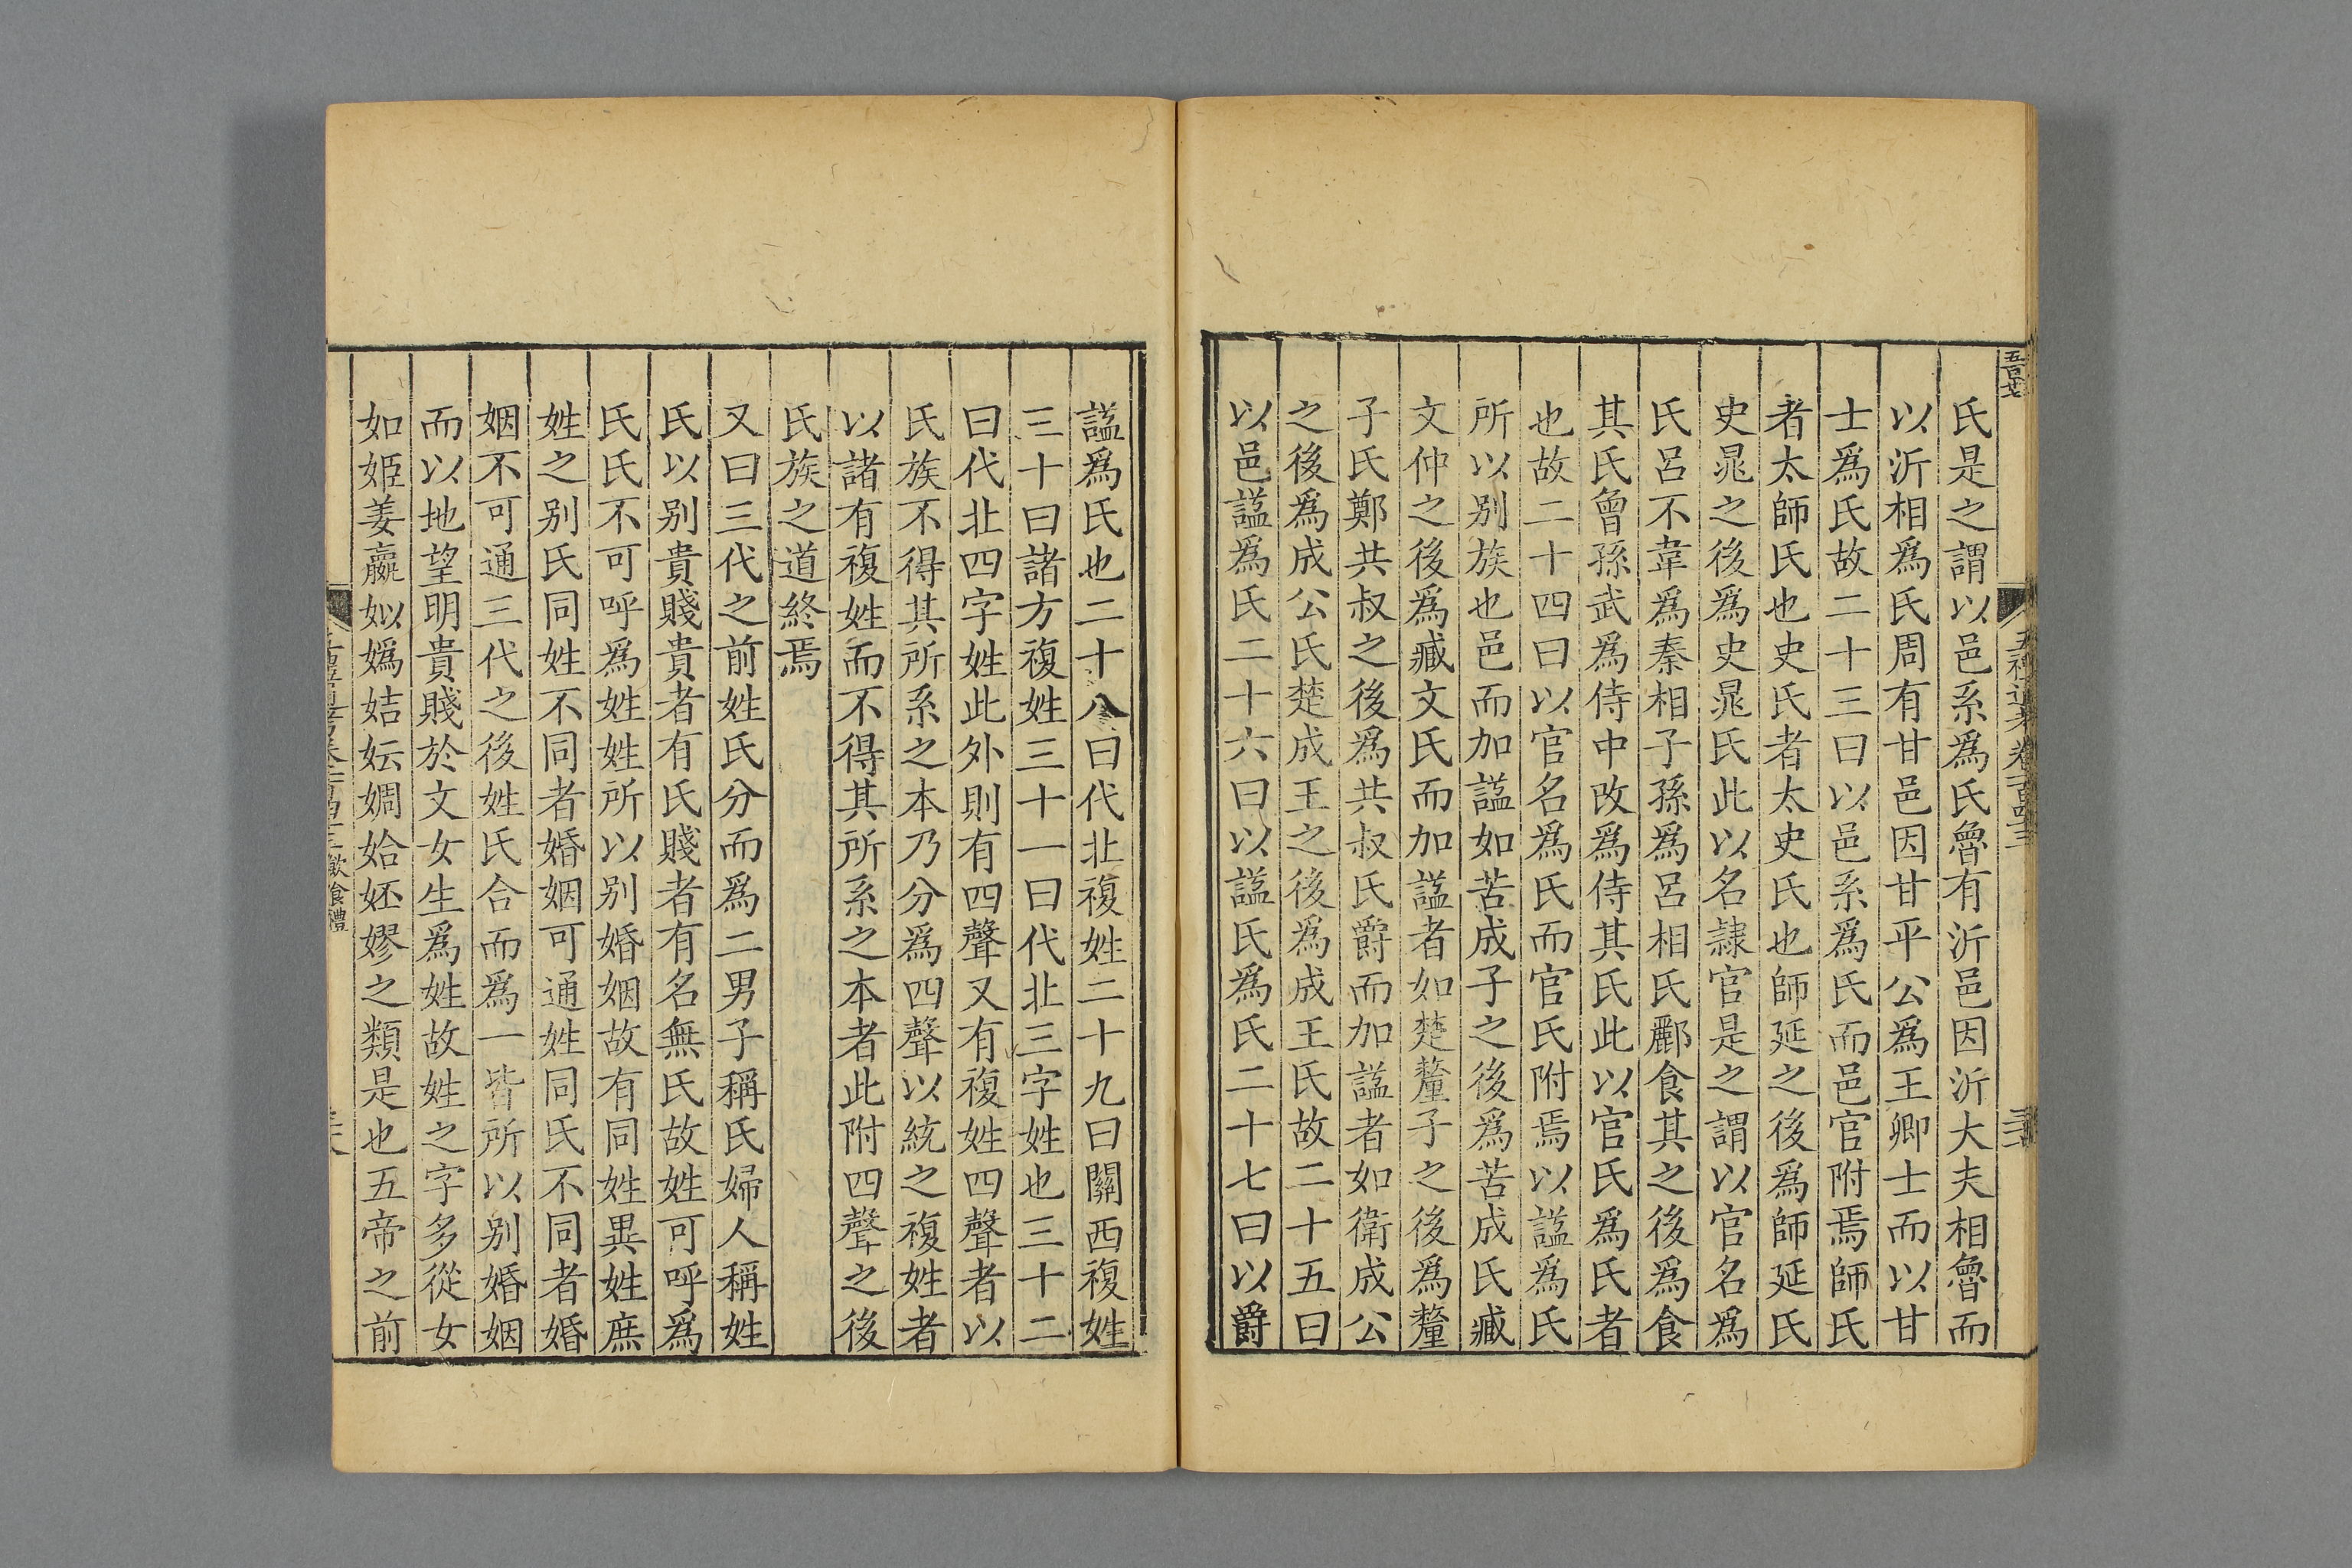 氏是之謂以邑系爲氏魯有沂邑因沂大夫相魯而
以沂相爲氏周有甘邑因甘平公爲王卿士而以甘
士爲氏故二十三曰以邑系爲氏而邑官附焉師氏
者太師氏也史氏者太史氏也師延之後爲師延氏
史晁之後爲史晁氏此以名隸官是之謂以官名爲
氏呂不韋爲秦相子孫爲呂相氏酈食其之後爲食
其氏曾孫武爲侍中改爲侍其氏此以官氏爲氏者
也故二十四曰以官名爲氏而官氏附焉以謚爲氏
所以别族也邑而加謚如苦成子之後爲苦成氏臧
文仲之後爲臧文氏而加謚者如楚釐子之後爲釐
子氏鄭共叔之後爲共叔氏爵而加謚者如衛成公
之後爲成公氏楚成王之後爲成王氏故二十五曰
以邑謚爲氏二十六曰以謚氏爲氏二十七曰以爵
謚爲氏也二十八曰代北複姓二十九曰關西複姓
三十曰諸方複姓三十一曰代北三字姓也三十二
曰代北四字姓此外則有四聲又有複姓四聲者以
氏族不得其所系之本乃分爲四聲以統之複姓者
以諸有複姓而不得其所系之本者此附四聲之後
氏族之道終焉
又曰三代之前姓氏分而爲二男子稱氏婦人稱姓
氏以别貴賤貴者有氏賤者有名無氏故姓可呼爲
氏氏不可呼爲姓姓所以别婚姻故有同姓異姓庶
姓之别氏同姓不同者婚姻可通姓同氏不同者婚
姻不可通三代之後姓氏合而爲一皆所以别婚姻
而以地望明貴賤於文女生爲姓故姓之字多從女
如姬姜嬴姒嬀姞妘婤姶妚嫪之類是也五帝之前